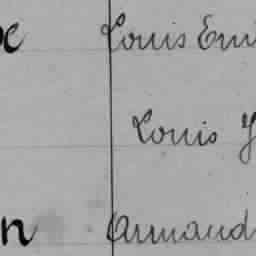 Louis Emi
Louis Y
n Armand